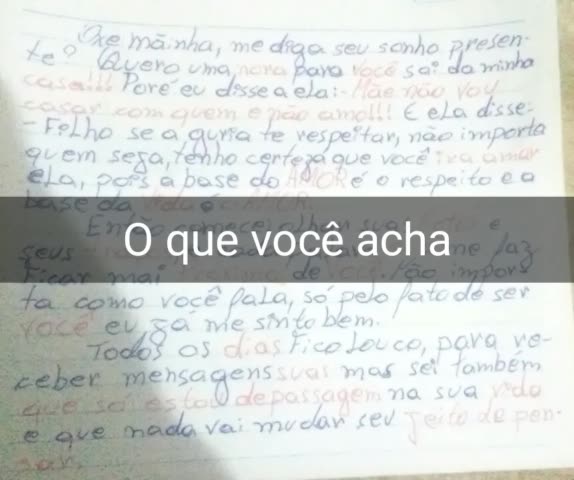 Oxe mãinha, me diga seu sonho presen-
te? Quero uma nora para você sai da minha
casa!!! Poré eu disse a ela:- Mãe não vou
casar com quem e não amo!!! E ela disse:
- Felho se a guria te respeitar, não importa
quem seja, tenho certeza que você ira amar
ela, pois a base do AMOR é o respeito e a
base da vida é o AMOR.
Então comecei e
seus me faz
O que você acha
Ficar mai de Não impor
ta como você fala, só pelo fato de ser
você eu já me sinto bem.
Todos os dias Fico Louco, para re-
ceber mensagens suas mas sei também
que só estou de passagem na sua vida
e que nada vai mudar seu jeito de pen-
sar.